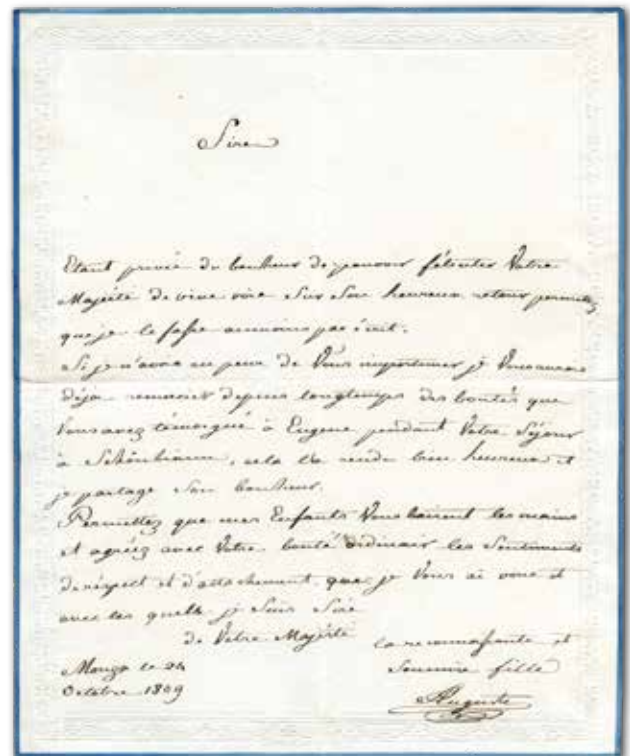 Sire
Etant privée du bonheur de pouvoir féliciter Votre
Majesté de vive voix sur son heureux retour permetez
que je le fasse aumoins par écrit.
Si je n'avois eu peur de Vous importuner je Vous aurois
déja remercier depuis longtemps des bontés que
Vous avez témoigné à Eugene pendant Votre Séjour
à Schönbrunn, cela l'a rendu bien heureux et
je partage son bonheur.
Permettez que mes Enfants Vous baisent les mains
et agréez avec Votre bonté ordinair les Sentiments
de réspect et d'attachement que je Vous ai voué et
avec les quells je Suis Sire
de Votre Majesté
la reconnaissante et
Soumise fille
Auguste
Monza le 24
Octobre 1809